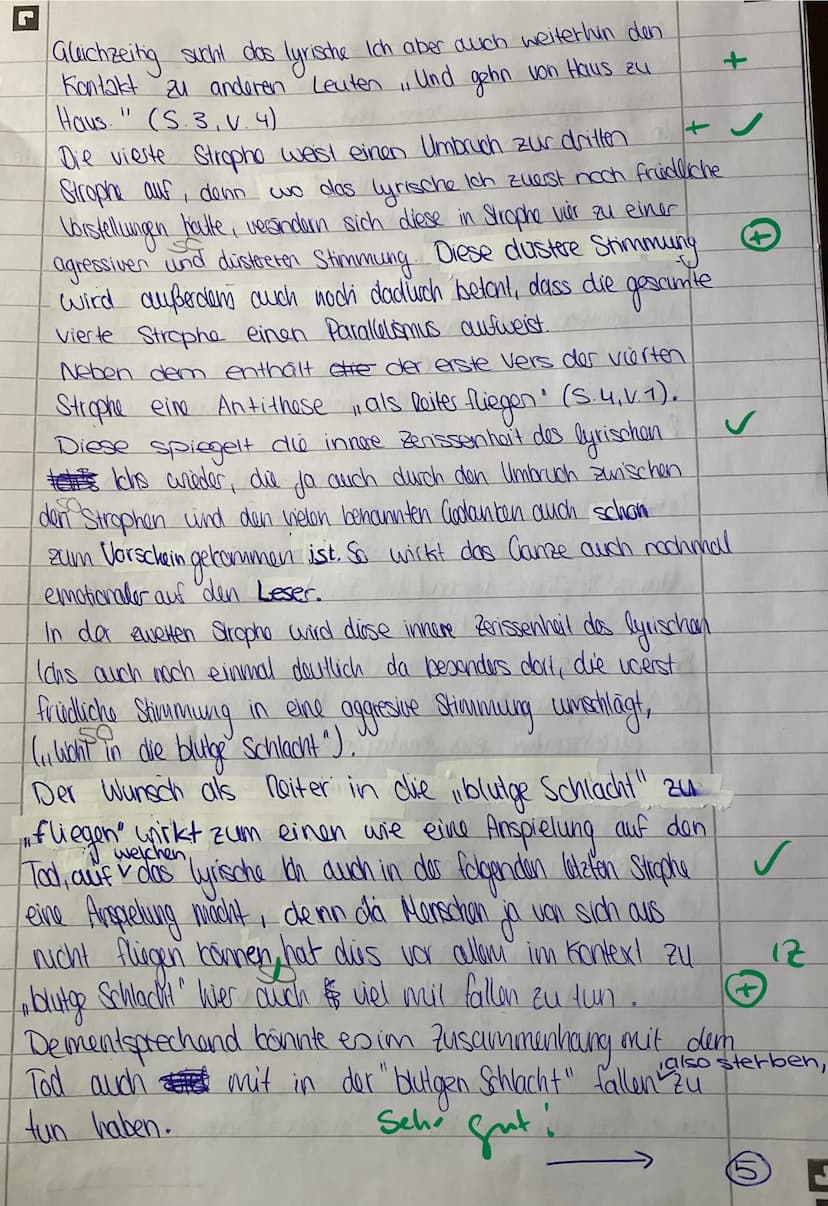 Gleichzeitig sucht das lyrische Ich aber auch weiterhin den
Kontakt zu anderen Leuten „Und gehn von Haus zu +
Haus." (S. 3, V. 4)
Die vieste Strophe weist einen Umbruch zur dritten + ✓
Strophe auf, denn wo das lyrische Ich zuerst noch friedliche
Vorstellungen hatte, verändern sich diese in Strophe vier zu einer
agressiven und düstereren Stimmung. Diese düstere Stimmung +
wird außerdem auch noch dadurch betont, dass die gesamte
vierte Strophe einen Parallelismus aufweist.
Neben dem enthält die der erste Vers der vierten
Strophe eine Antithese „als Reiter fliegen" (S.4, V.1).
Diese spiegelt die innere Zerissenheit des lyrischen ✓
Ichs wieder, die ja auch durch den Umbruch zwischen
den Strophen und den vielen benannten Gedanken auch schon
zum Vorschein gekommen ist. So wirkt das Ganze auch nochmal
emotionaler auf den Leser.
In der zweiten Strophe wird diese innere Zerissenheit des lyrischen
Ichs auch noch einmal deutlich da besonders dort, die
friedliche Stimmung in eine aggresive Stimmung umschlägt,
(„Wohl in die blutge Schlacht").
Der Wunsch als Reiter in die „blutge Schlacht" zu
„fliegen" wirkt zum einen wie eine Anspielung auf den
Tod, auf welchen das lyrische Ich auch in der folgenden letzten Strophe ✓
eine Anspielung macht, denn da Menschen ja von sich aus
nicht fliegen können, hat dies vor allem im Kontext zu
„blutge Schlacht" hier auch viel mit fallen zu tun. +
Dementsprechend könnte es im Zusammenhang mit dem
Tod auch mit in der "blutgen Schlacht" fallen, also sterben, zu
tun haben. Sehr gut!
→ 5